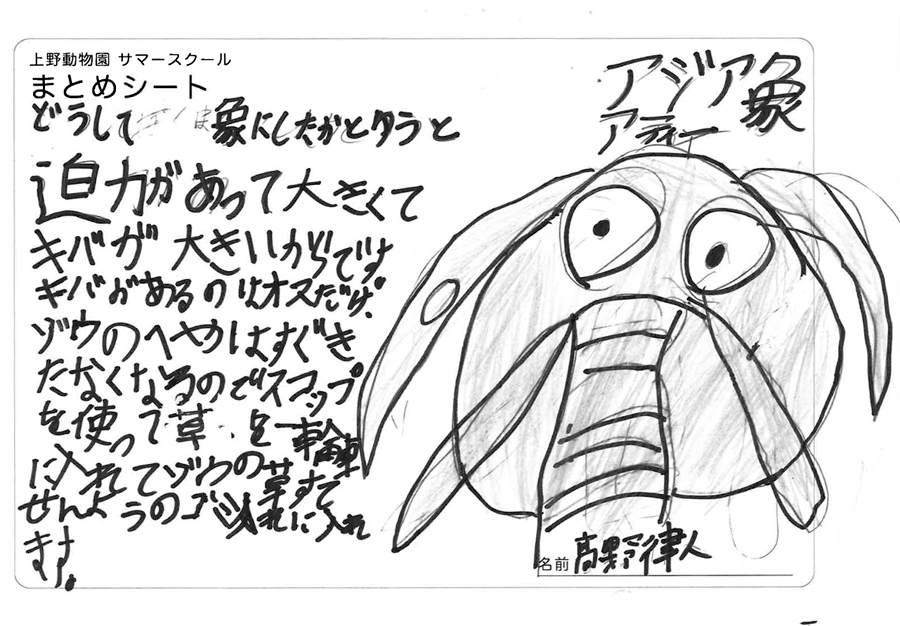 上野動物園 サマースクール
まとめシート
どうして 象にしたかとゆうと
迫力があって大きくて
キバが大きいからです
キバがあるのはオスだけ。
ゾウのへやはすぐき
たなくなるのでスコップ
を使って草を一輪車
に入れてゾウの草すて
せんようのゴミ入れに入れ
ます。
アジア象
アティー
名前 高野律人